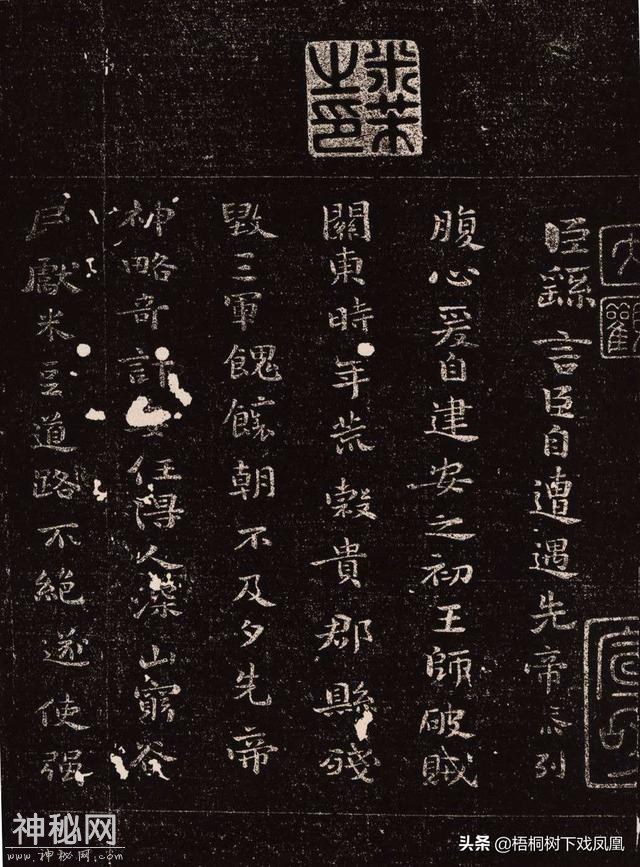 米芾之印
大觀
臣繇言臣自遭遇先帝忝列
腹心爰自建安之初王師破賊
關東時年荒穀貴郡縣殘
毀三軍餽饟朝不及夕先帝
神略奇計委任得人深山窮谷
民獻米豆道路不絕遂使强
神秘网
www.神秘网.com
头条 @梧桐树下戏凤凰